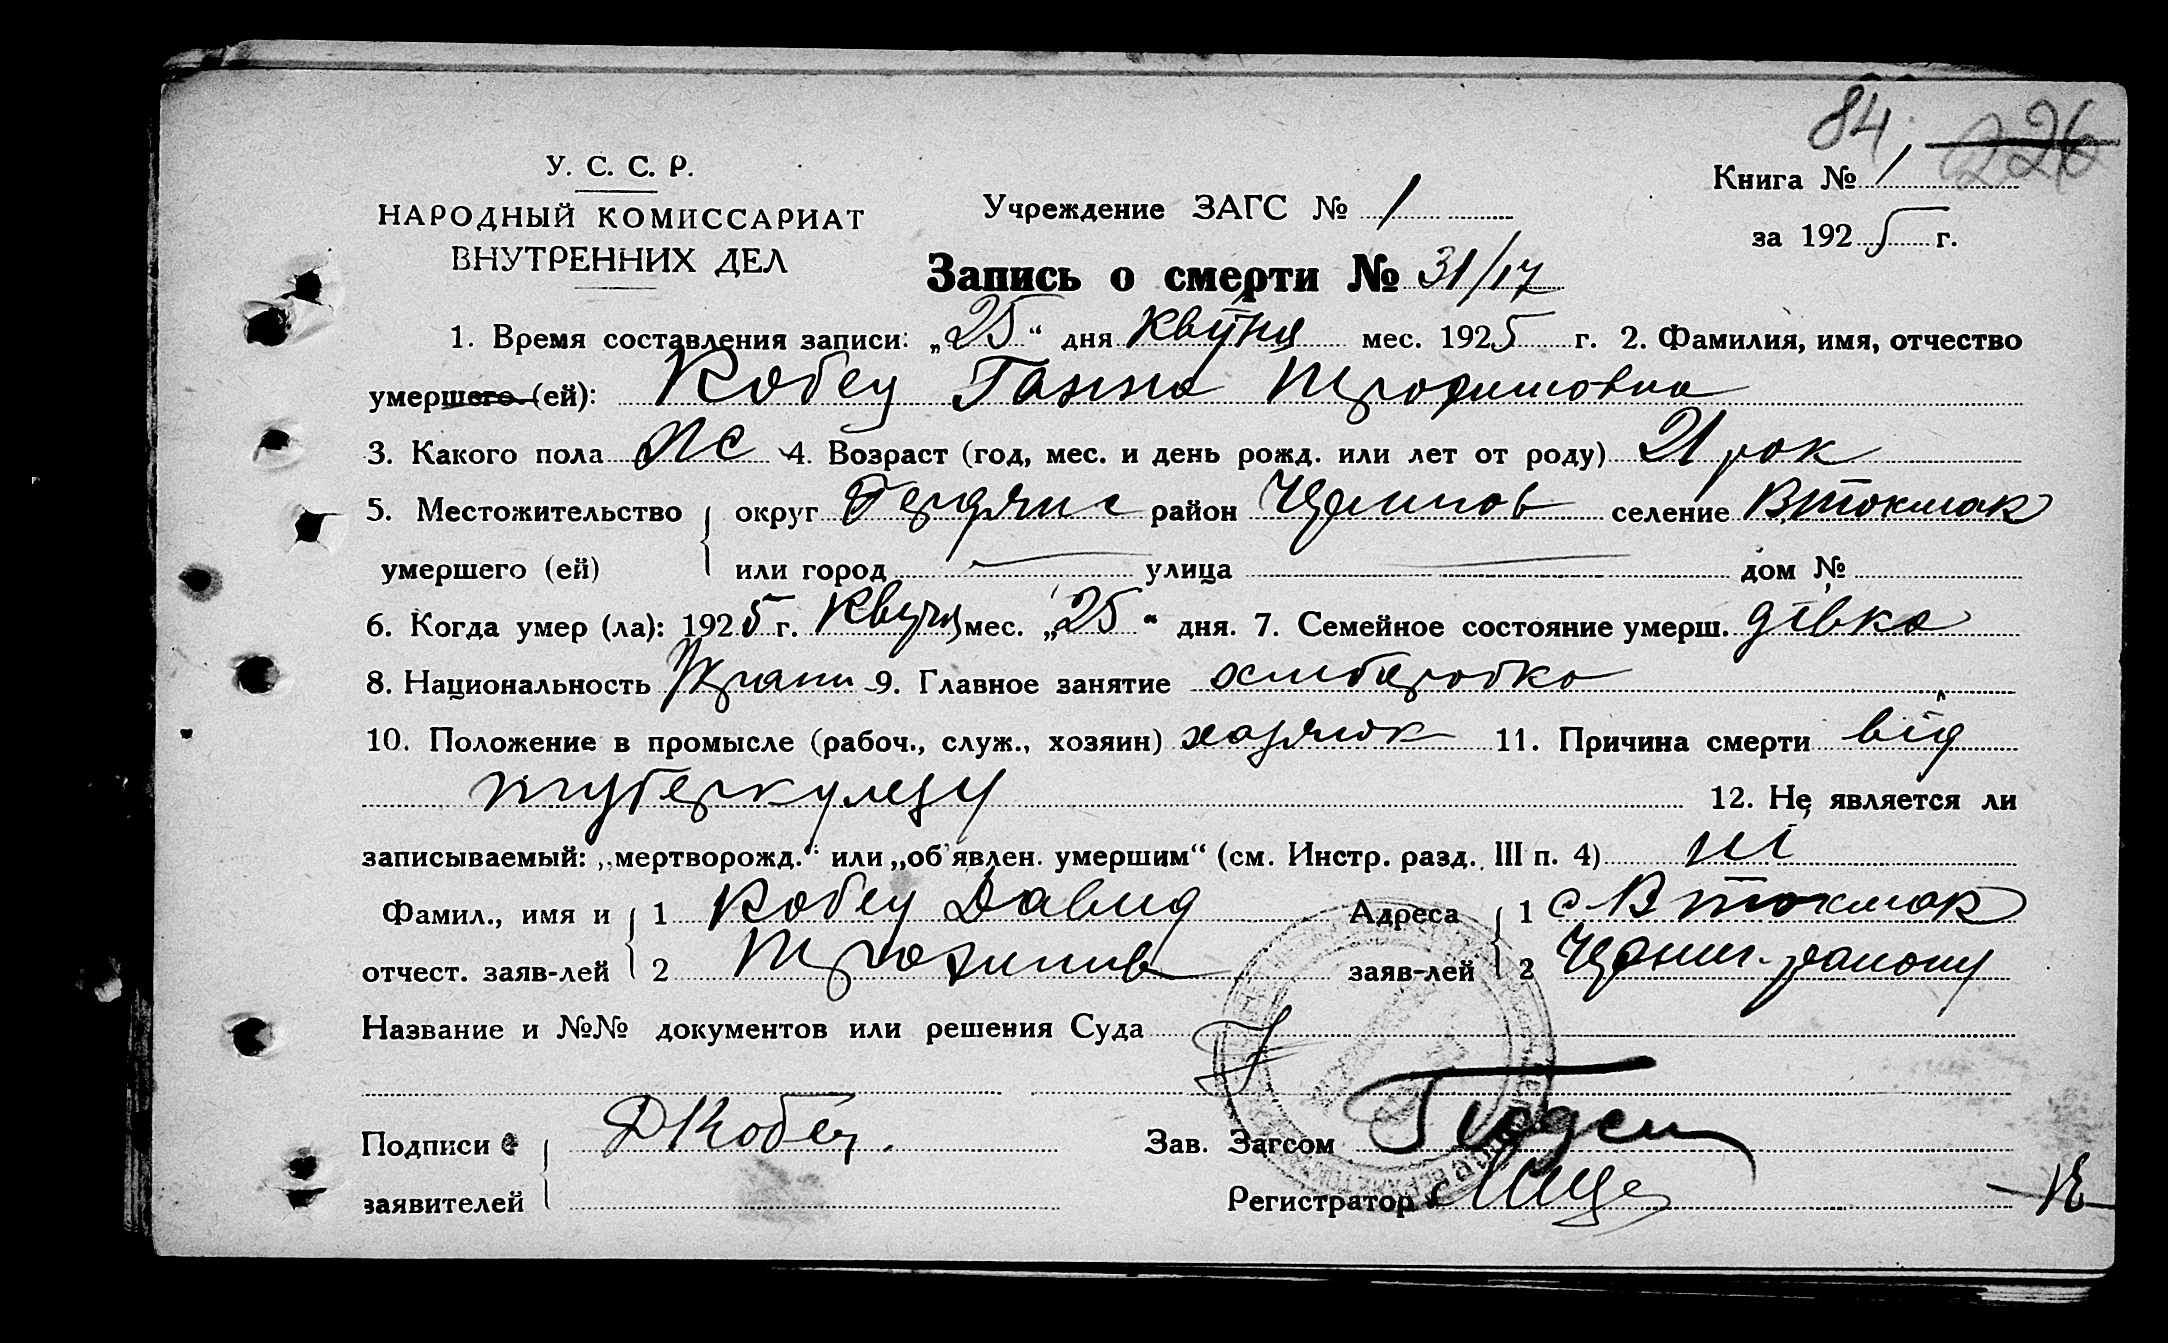 84. 226
У. С. С. Р.
НАРОДНЫЙ КОМИССАРИАТ
ВНУТРЕННИХ ДЕЛ
Учреждение ЗАГС № 1
Книга № 1
за 1925 г.
Запись о смерти № 31/17
1. Время составления записи: „25“ дня Квітня мес. 1925 г. 2. Фамилия, имя, отчество
умершего (ей): Кобец Ганна Трофимовна
3. Какого пола жс 4. Возраст (год, мес. и день рожд. или лет от роду) 21 рок
5. Местожительство округ Бердянс район Чернигов селение Втокмак
умершего (ей) или город — улица — дом №
6. Когда умер (ла): 1925 г. Квітня мес. „25“ дня. 7. Семейное состояние умерш. дівка
8. Национальность Украин 9. Главное занятие хлиборобка
10. Положение в промысле (рабоч., служ., хозяин) 11. Причина смерти від
туберкулезу 12. Не является ли
записываемый: „мертворожд.“ или „об'явлен. умершим“ (см. Инстр. разд. III п. 4) ні
Фамил., имя и 1 Кобец Давид Адреса 1 с Втокмак
отчест. заяв-лей 2 Трофимив заяв-лей 2 Черниг. району
Название и №№ документов или решения Суда
Подписи Д Кобец. Зав. Загсом
заявителей Регистратор